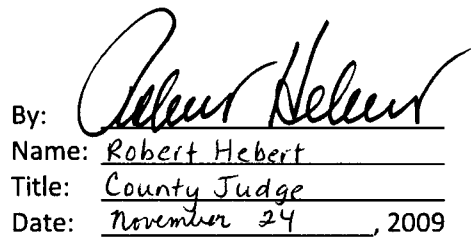 By:
Name: Robert Hebert
Title: County Judge
Date: November 24, 2009